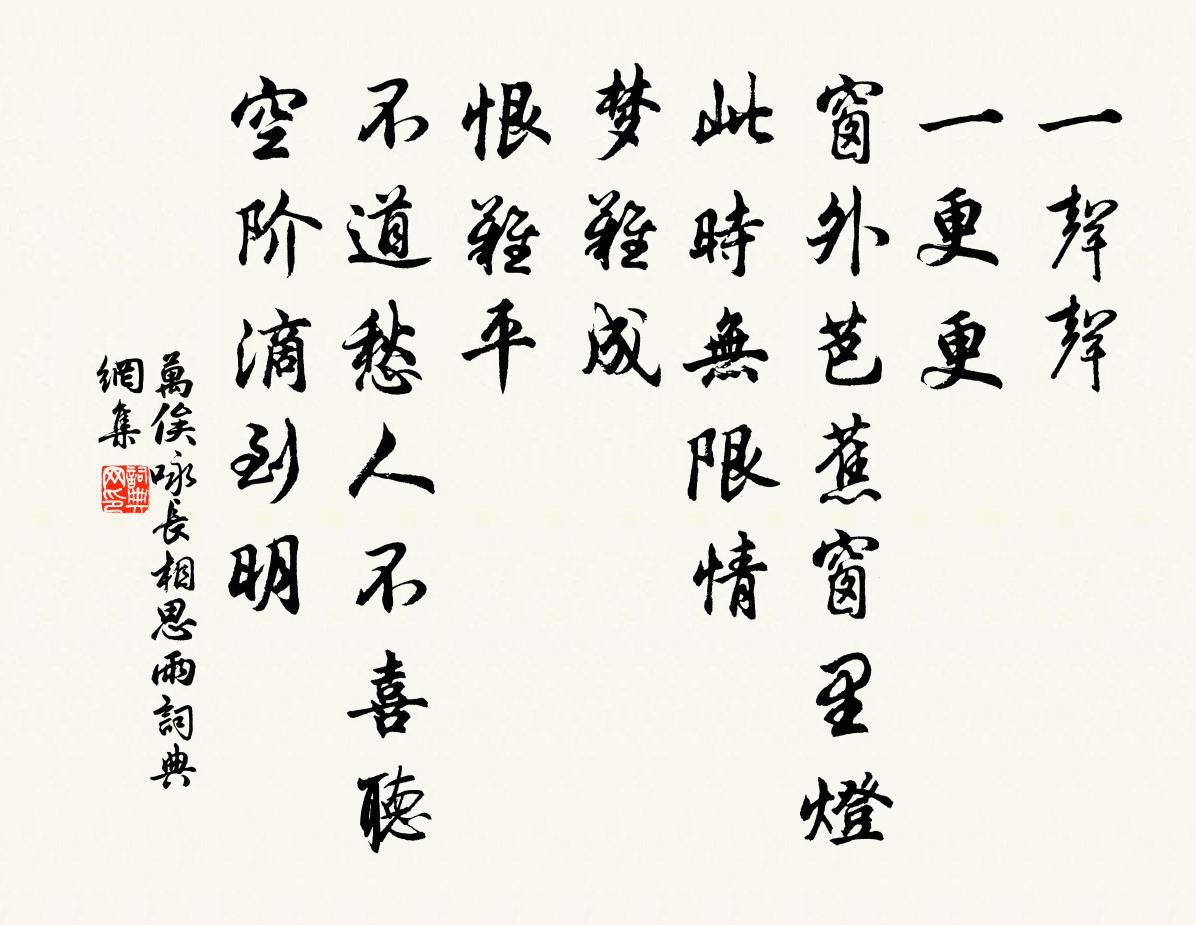 一聲聲
一更更
窗外芭蕉窗里燈
此時無限情
梦難成
恨難平
不道愁人不喜聽
空阶滴到明
萬俟咏長相思雨詞典
網集
詞典
网印